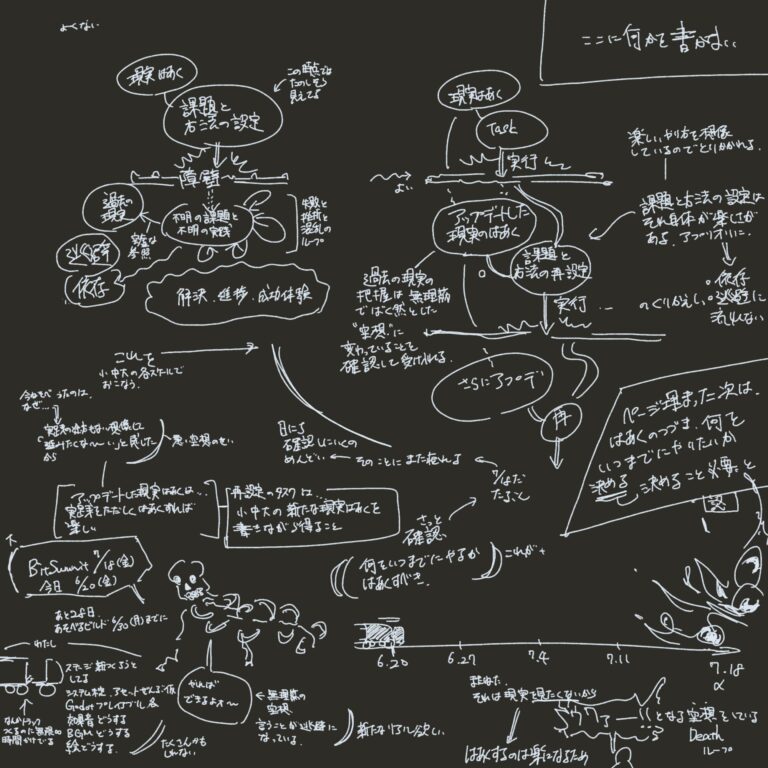 よくない
現実はあく
課題と
方法の設定
この時点では
たのしそう
見えてる
障壁
過去の
現実
不明の課題と
不明の実践
失敗と
挫折と
混乱の
ループ
安易な
参照
逃避
依存
解決、進捗、成功体験
これを
小中大の各スケールで
おこなう。
ここに何かを書かない
現実はあく
Task
実行
よい
アップデートした
現実のはあく
課題と
方法の再設定
実行
のくりかえし。
楽しいやり方を想像
しているのでとりかかれる。
課題と方法の設定は
それ自体が楽しさが
ある。アプリオリに。
依存
逃避に
流れない
過去の現実の
把握は無理筋
でばく然とした
"空想"に
変わっていることを
確認して受け入れる。
さらにアプデ
再
ページ埋まった次は、
はあくのつづき、何を
いつまでにやりたいか
決める 決めること必要と
なぜ…
から
悪い空想のせい
アップデートした現実はあくは…
実践をただしくはあくすれば
楽しい
再設定のタスクは…
小中大の新たな現実はあくを
書きながら得ること
日にち
確認しにいくの
めんどい
そのことにまた疲れる
7/18だ
さっと
確認
何をいつまでにやるか
はあくすべき。
これが+
BitSummit 7/18(金)
今日 6/20(金)
あと28日.
あそべるビルド 6/30(月)までに
わたし
ステージ
してる
なんかトラック
つくるのに無限の
時間かけている
効果音どうする
BGMどうする
絵どうする.
たくさんかも
しれない
やれば
できるよォ〜
無理筋の
空想、
言うことが逃避に
なっている.
新たなリアル欲しい
6.20
6.27
7.4
7.11
7.18
α
それは現実を見たくないから
はあくするのは楽になるため
となる空想をしている
Death
ループ